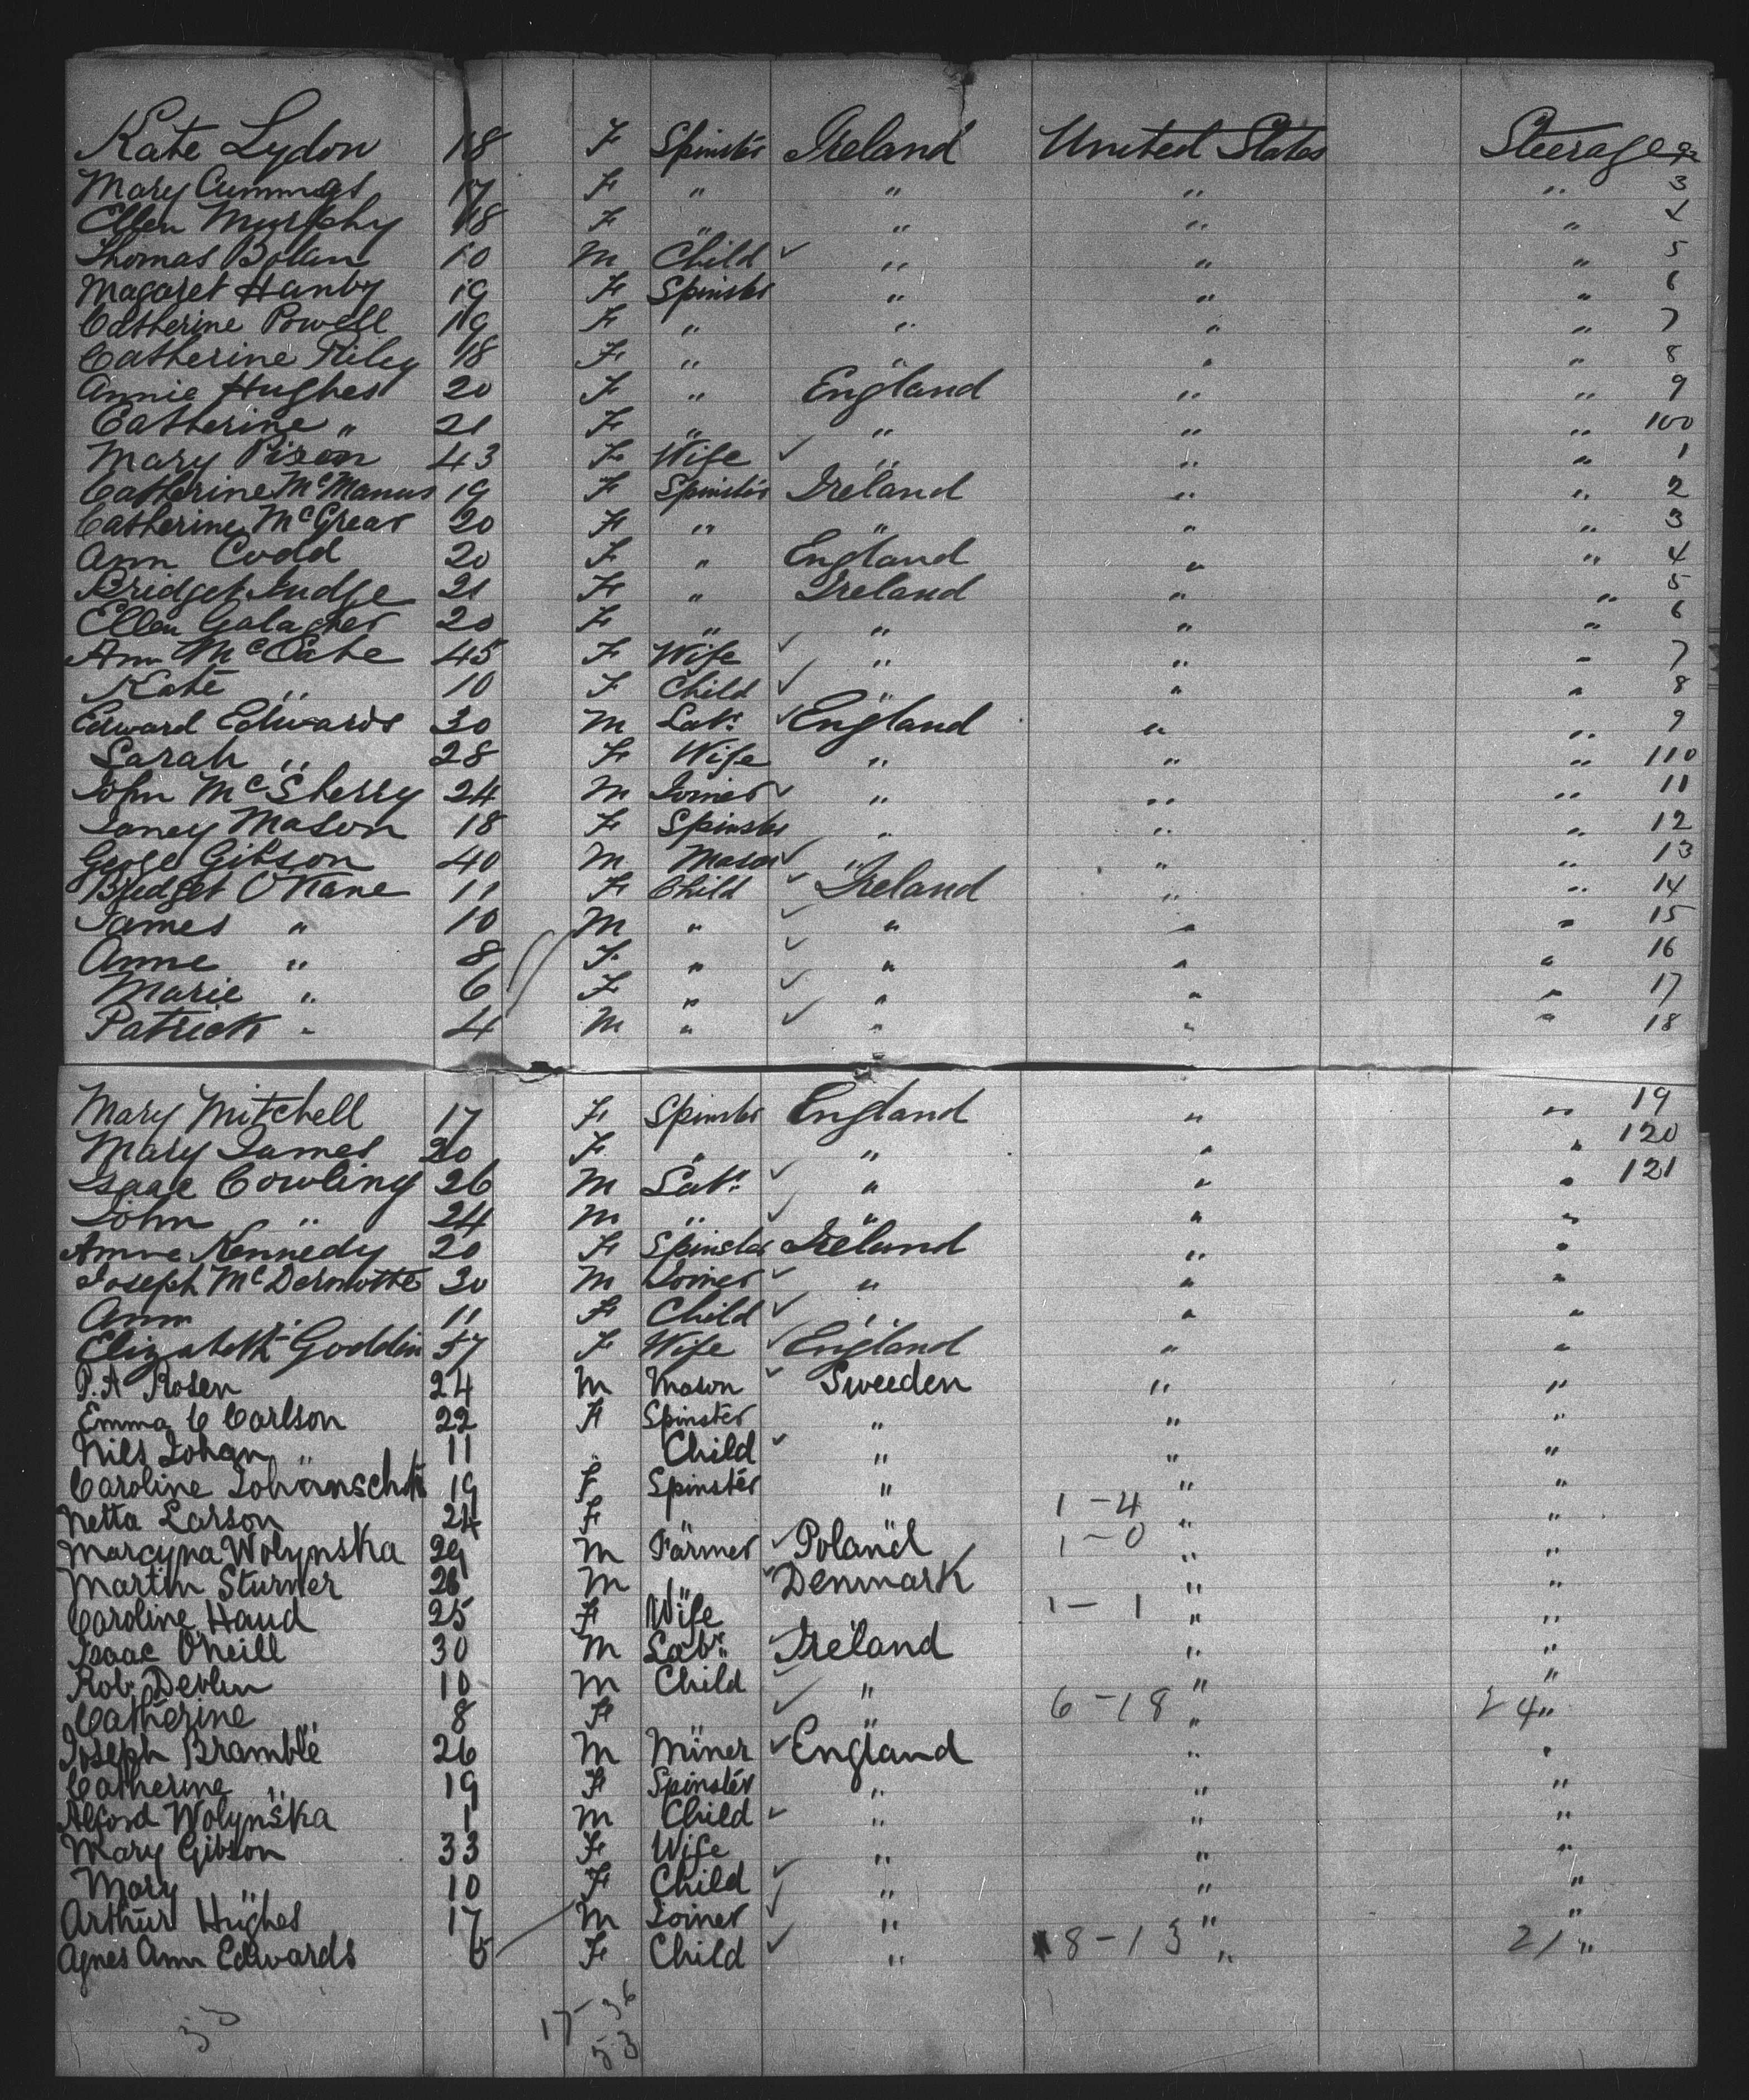 Kate Lydon 18 F Spinster Ireland United States Steerage
Mary Cummgs 17 F " " " " 3
Ellen Murphy 18 F " " " " 4
Thomas Bolan 10 M Child ✓ " " " 5
Magaret Hanby 19 F Spinster " " " 6
Catherine Powell 19 F " " " " 7
Catherine Riley 18 F " " " " 8
Annie Hughes 20 F " England " " 9
Catherine " 21 F " " " " 100
Mary Pixon 43 F Wife ✓ " " " 1
Catherine McManus 19 F Spinster Ireland " " 2
Catherine McGrear 20 F " " " " 3
Ann Codd 20 F " England " " 4
Bridget Judge 21 F " Ireland " " 5
Ellen Galagher 20 F " " " " 6
Ann McCabe 45 F Wife ✓ " " " 7
Kate " 10 F Child ✓ " " " 8
Edward Edwards 30 M Labr ✓ England " " 9
Sarah " 28 F Wife " " " 110
John McSherry 24 M Joiner ✓ " " " 11
Janey Mason 18 F Spinster " " " 12
George Gibson 40 M Mason ✓ " " " 13
Bridget O'Kane 11 F Child ✓ Ireland " " 14
James " 10 M " ✓ " " " 15
Anne " 8 F " ✓ " " " 16
Marie " 6 F " ✓ " " " 17
Patrick " 4 M " ✓ " " " 18
Mary Mitchell 17 F Spinster England " " 19
Mary James 20 F " " " " 120
Isaac Cowling 26 M Labr ✓ " " " 121
John " 24 M " ✓ " " "
Anne Kennedy 20 F Spinster Ireland " "
Joseph McDermotte 30 M Joiner ✓ " " "
Ann " 11 F Child ✓ " " "
Elizabeth Goddin 57 F Wife ✓ England " "
P.A Rosen 24 M Mason ✓ Sweeden " "
Emma C Carlson 22 F Spinster " " "
Nils Johan " 11 Child ✓ " " "
Caroline 19 F Spinster " " "
Netta Larson 24 F " " 1-4 " "
Marcyna Wolynska 29 M Farmer ✓ Poland 1-0 " "
Martin Sturner 26 M " ✓ Denmark " "
Caroline Haud 25 F Wife " 1-1 " "
Isaac O'Neill 30 M Labr ✓ Ireland " "
Rob. Devlin 10 M Child ✓ " " "
Catherine " 8 F " ✓ " 6-18 " 24 "
Joseph Bramble 26 M Miner ✓ England " "
Catherine " 19 F Spinster " " "
Alford Wolynska 1 M Child ✓ " " "
Mary Gibson 33 F Wife " " "
Mary " 10 F Child ✓ " " "
Arthur Hughes 17 M Joiner ✓ " " "
Agnes Ann Edwards 5 F Child ✓ " 8-13 " 21 "
17-36
53